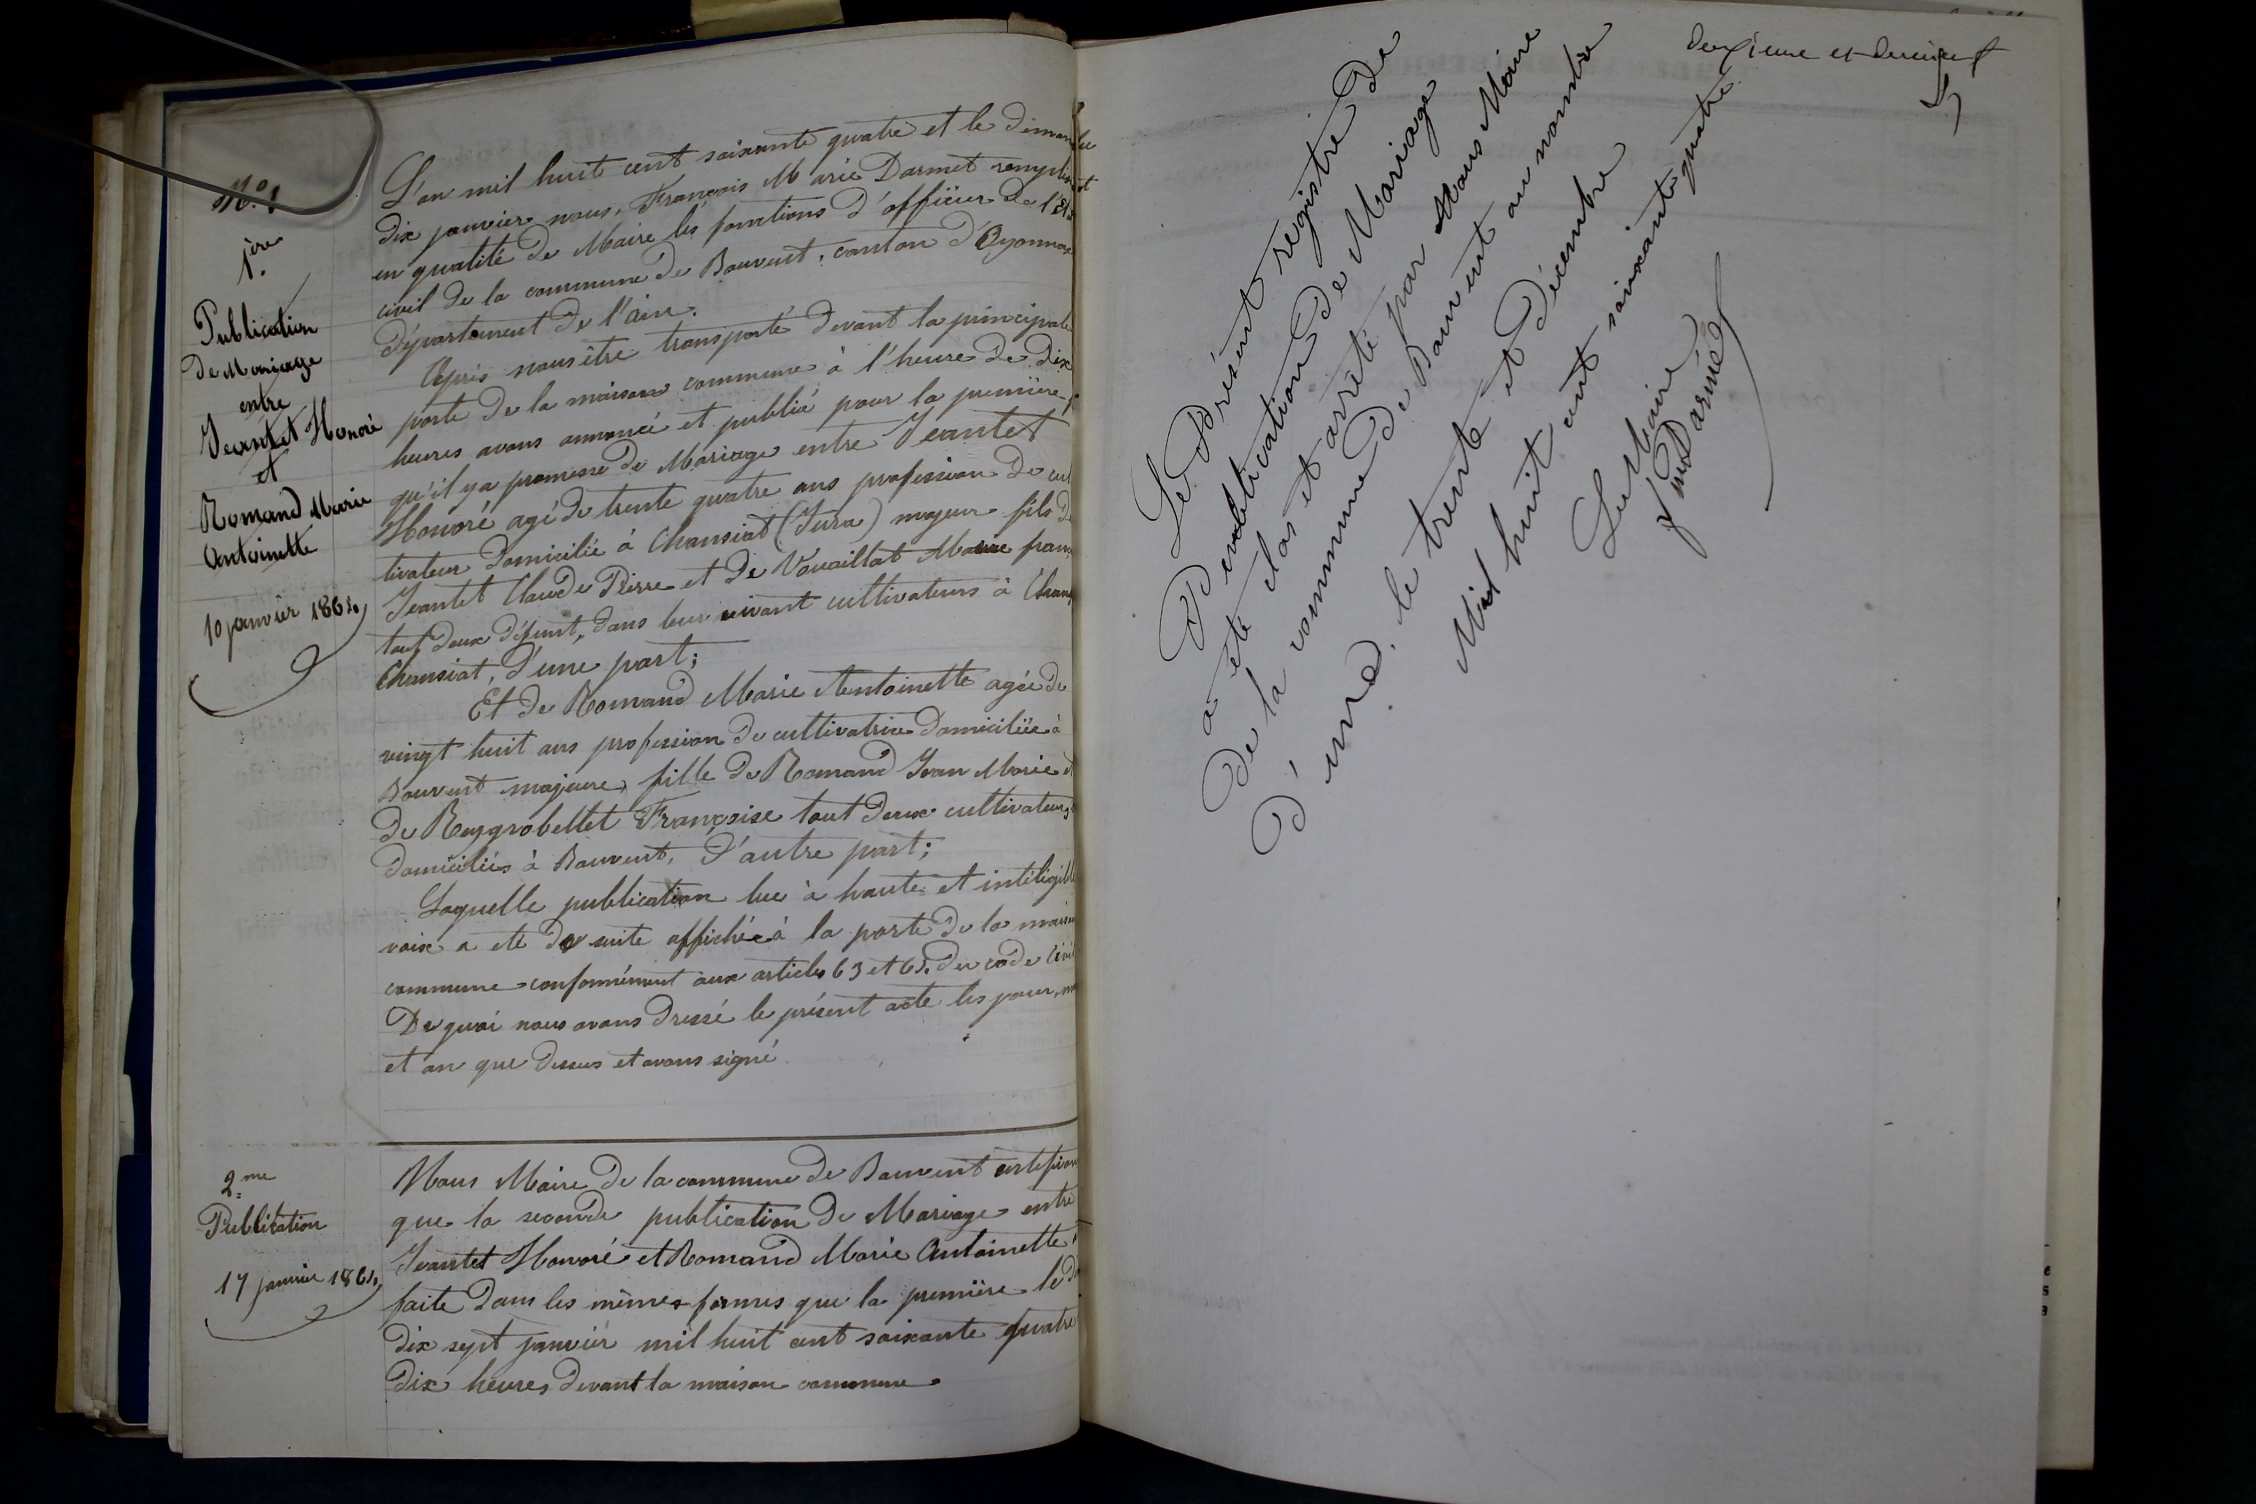 N°. 1
1ère
Publication
de Mariage
entre
Jeantet Honoré
et
Romand Marie
Antoinette
10 janvier 1864
L'an mil huit cent soixante quatre et le dimanche
dix janvier nous, François Marie Darmet remplissant
en qualité de Maire les fonctions d'officier de l'Etat
civil de la commune de Bouvent, canton d'Oyonnax
département de l'ain.
Après nous être transporté devant la principale
porte de la maison commune à l'heure de dix
heures avons annoncé et publié pour la première f
qu'il y a promesse de Mariage entre Jeantet
Honoré agé de trente quatre ans profession de cul
tivateur domicilié à Chansiat (Jura) majeur fils de
Jeantet Claude Pierre et de Vouaillat Marie fran
tout deux défunt, dans leur vivant cultivateurs à
Chansiat, d'une part;
Et de Romand Marie Antoinette agée de
vingt huit ans profession de cultivatrice domiciliée à
Bouvent majeure, fille de Romand Jean Marie et
de Reygrobellet Françoise tout deux cultivateurs
domiciliés à Bouvent, d'autre part;
Laquelle publication lue à haute et inteligible
voix a eté de suite affichée à la porte de la maison
commune conformément aux articles 63 et 65 du code Civil
De quoi nous avons dressé le présent acte les jour, m
et an que dessus et avons signé
2me
Publication
17 janvier 1864
Nous Maire de la commune de Bouvent certifions
que la seconde publication de Mariage entre
Jeantet Honoré et Romand Marie Antoinette
faite dans les mêmes formes que la première le d
dix sept janvier mil huit cent soixante quatre
dix heures devant la maison commune.
deuxième et dernier f
Le Présent registre de
Publication de Mariage
a été clos et arrêté par Nous Maire
De la commune De Bouvent au nombre
D'une. le trente et Décembre
Mil huit cent soixante quatre
Le Maire
f m Darmet